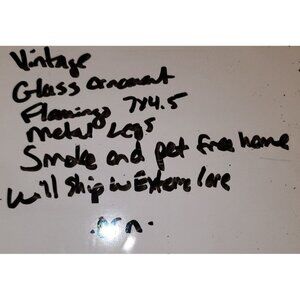 Vintage
Glass ornament
Flamingo 7x4.5
metal Legs
Smoke and pet free home
will Ship in Extreme Care